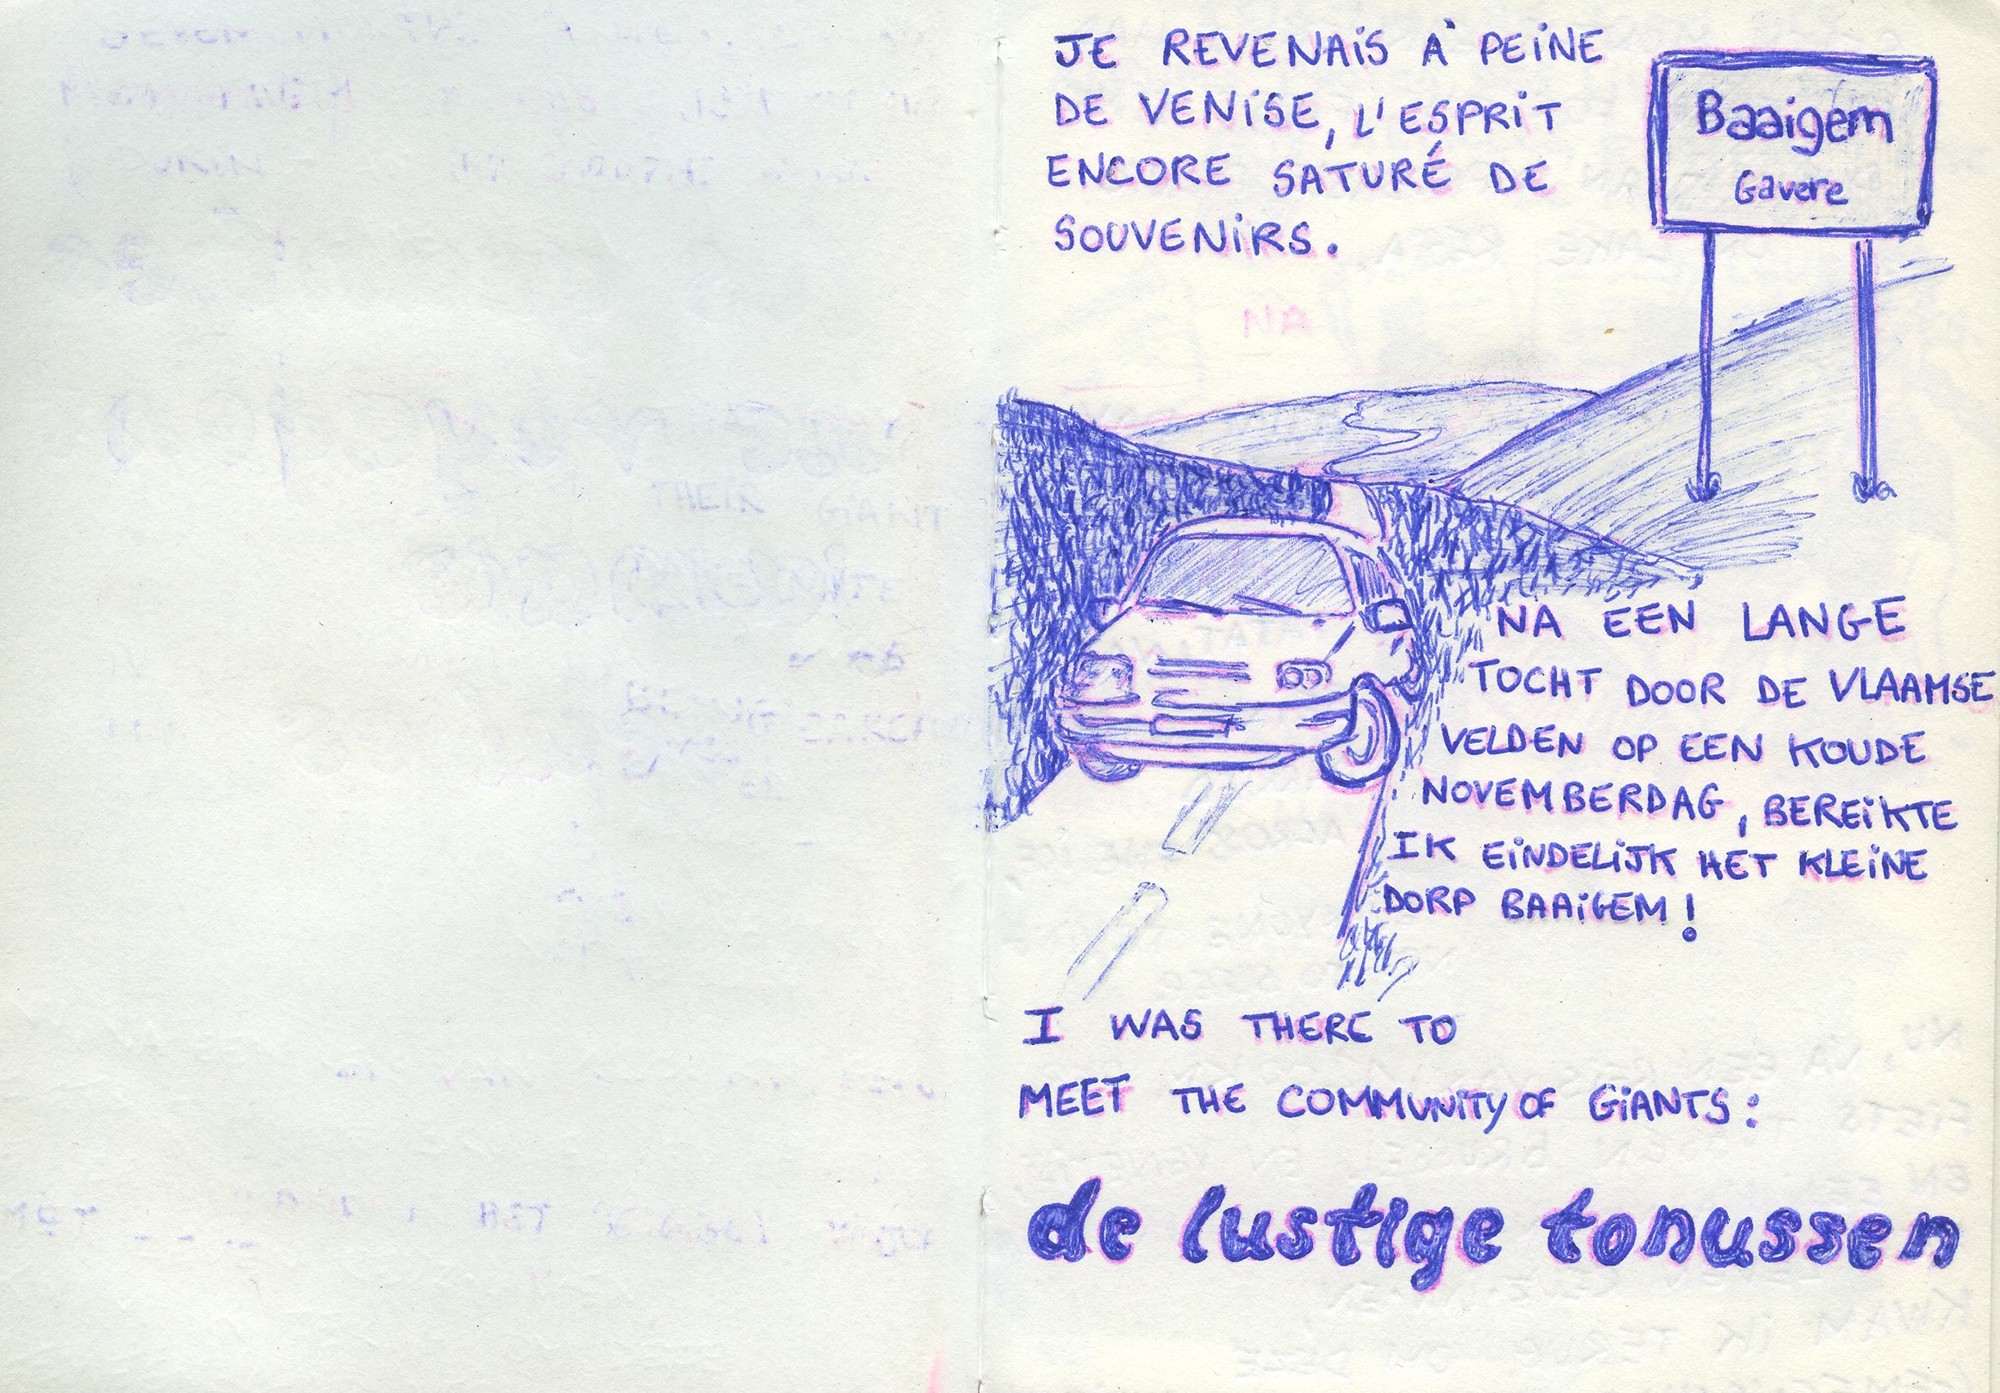 JE REVENAIS À PEINE
DE VENISE, L'ESPRIT
ENCORE SATURÉ DE
SOUVENIRS.
Baaigem
Gavere
NA EEN LANGE
TOCHT DOOR DE VLAAMSE
VELDEN OP EEN KOUDE
NOVEMBERDAG, BEREIKTE
IK EINDELIJK HET KLEINE
DORP BAAIGEM!
I WAS THERE TO
MEET THE COMMUNITY OF GIANTS:
de lustige tonussen